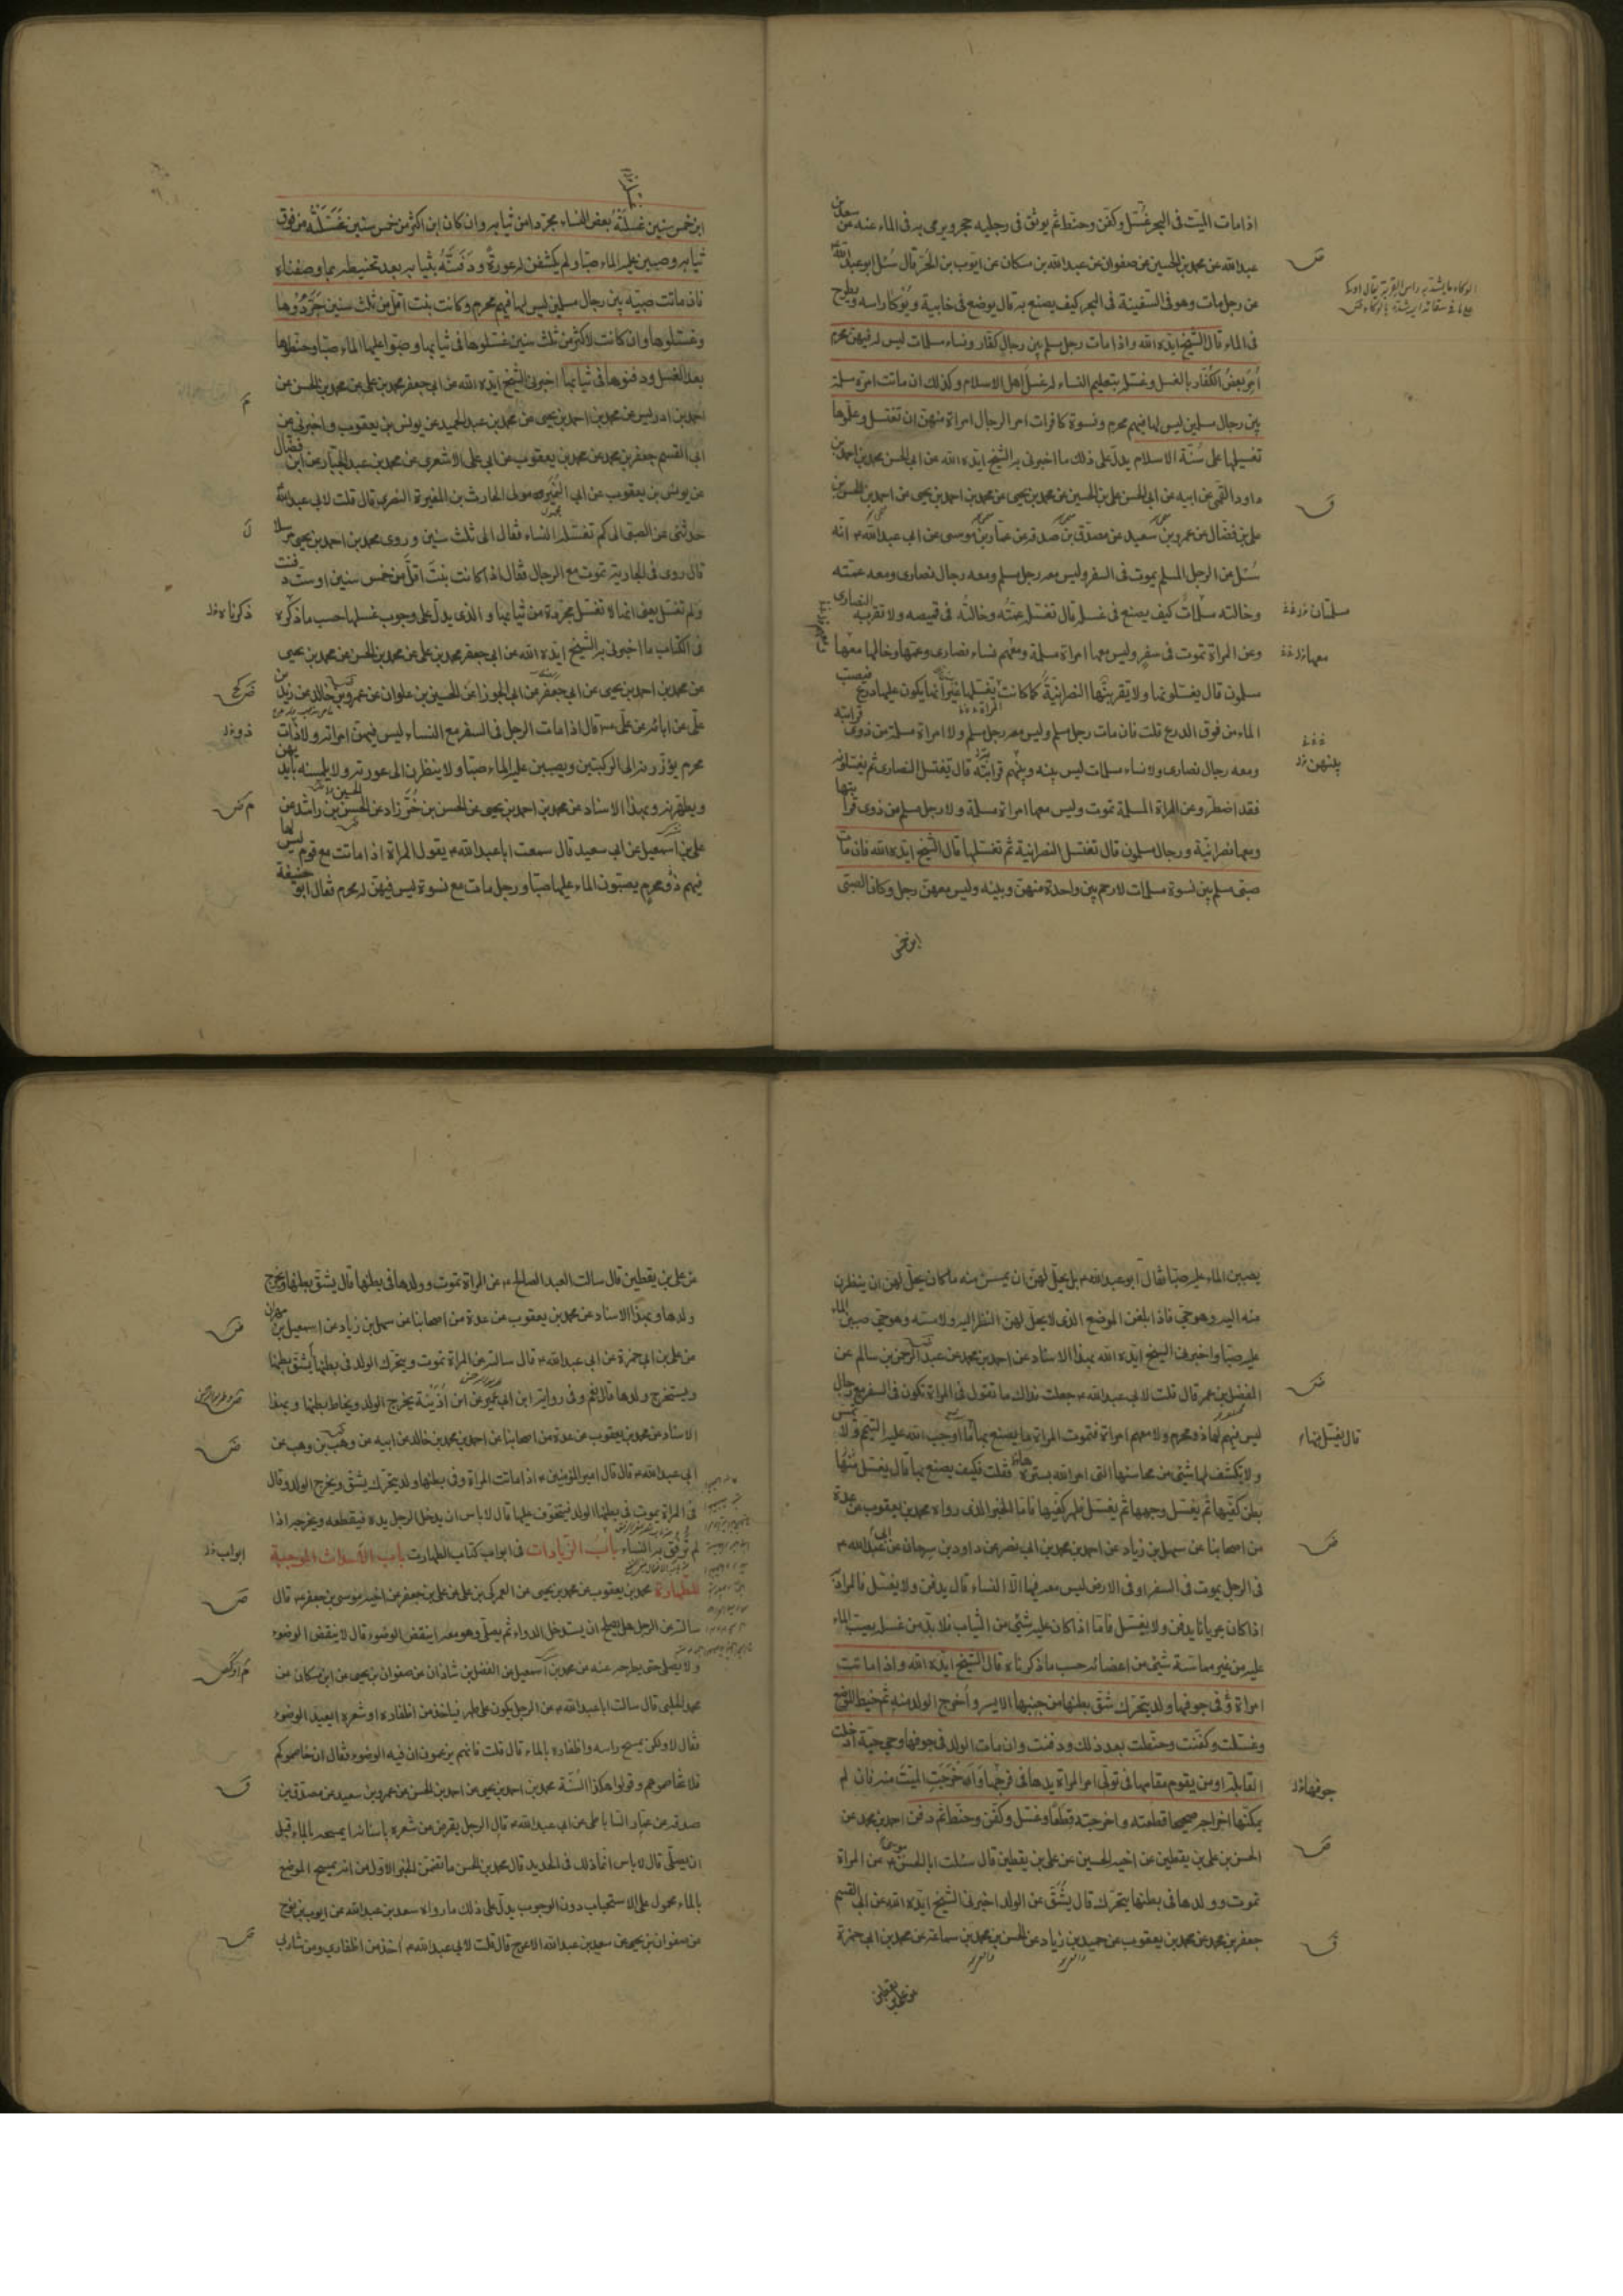 اذا مات الميّت فى البحر غُسّل وكفّن وحنّط ثم يوثق فى رجليه حجر ويرمى به فى الماء عنه عن سعد بن
عبد الله عن محمد بن الحسين عن صفوان عن عبد الله بن مسكان عن ايّوب بن الحُرّ قال سُئل ابو عبد الله
عن رجل مات وهو فى السّفينة فى البحر كيف يصنع به قال يوضع فى خابية ويُوْكَأ راسه ويطرح
فى الماء قال الشيخ ايّده الله واذا مات رجل مسلم بين رجال كفّار ونساء مسلمات ليس له فيهنّ محرم
اُمِرَ بعضُ الكُفّار بالغسل وغسّله بتعليم النساء له غُسل اهل الاسلام وكذلك ان ماتت امرة مسلمة
بين رجال مسلمين ليس لها فيهم محرم ونسوة كافرات امر الرجال امراة منهنّ ان تغتسل وعلّموها
تغسيلها على سُنّة الاسلام يدلّ على ذلك ما اخبرنى به الشّيخ ايّده الله عن ابى الحسن محمد بن احمد بن
داود القمّى عن ابيه عن ابى الحسن على بن الحسين عن محمد بن يحيى عن محمد بن احمد بن يحيى عن احمد بن الحسن بن
على بن فضّال عن عمرو بن سعيد عن مصدّق بن صدقه عن عمّار بن موسى عن ابى عبد الله انّه
سُئل عن الرجل المسلم يموت فى السفر وليس معه رجل مسلم ومعه رجال نصارى ومعه عمّته
وخالته مسلمات كيف يصنع فى غسله قال تغسّله عمّتُه وخالتُه فى قميصه ولا تقربه النصارى
وعن المراة تموت فى سفر وليس معها امراة مسلمة ومعهم نساء نصارى وعمّها وخالها معها
مسلمون قال يغسّلونها ولا يقربنّها النصرانيّة كما كانت يغسّلها غير انّه يكون عليها درع فيصب
الماء من فوق الدرع قلت فان مات رجل مسلم وليس معه رجل مسلم ولا امراة مسلمة من ذوى قرابته
ومعه رجال نصارى ونساء مسلمات ليس بينه وبينهم قرابَتَه قال يغتسل النصارى ثم يغسّلونه
فقد اضطرّ وعن المراة المسلمة تموت وليس معها امراة مسلمة ولا رجل مسلم من ذوى قرابتها
ومعها نصرانيّة ورجال مسلمون قال تغتسل النصرانية ثم تغسّلها قال الشيخ ايّده الله فان مات
صبّى مسلم بين نسوة مسلمات لا رحم بين واحدة منهنّ وبينه وليس معهنّ رجل وكان الصبّى
ابن خمس
مسلمتان
معها
بينهن
ابن خمس سنين غسّلَتْهُ بعض النساء مجرّدا من ثيابه وان كان ابن اكثر من خمس سنين غَسّلْنَه من فوق
ثيابه وصببن عليه الماء صبّا ولم يكشفن له عورةً ودَفنّه بثيابه بعد تحنيطه بما وصفناه
فان ماتت صبيّه بين رجال مسلمين ليس لها فيهم محرم وكانت بنت اقلّ من ثلث سنين جَرَّدُوْها
وغسّلوها وان كانت لاكثر من ثلث سنين غسّلوها فى ثيابها وصبّوا عليها الماء صبّا وحنّطوها
بعد الغسل ودفنوها فى ثيابها اخبرنى الشّيخ ايّده الله عن ابى جعفر محمد بن على عن محمد بن الحسن عن
احمد بن ادريس عن محمد بن احمد بن يحيى عن محمد بن عبد الحميد عن يونس بن يعقوب واخبرنى عن
ابى القسم جعفر بن محمد عن محمد بن يعقوب عن ابى على الاشعرى عن محمد بن عبد الجبّار عن ابن فضّال
عن يونس بن يعقوب عن ابى النُمَيْر مولى الحارث بن المغيرة النصرى قال قلت لابى عبد الله
حدّثنى عن الصبّى الى كم تغسّله النساء فقال الى ثلث سنين وروى محمد بن احمد بن يحيى مرسلا
قال روى فى الجارية تموت مع الرجال فقال اذا كانت بنت اقلّ من خمس سنين او ستّ دفنت
ولم تغسّل يعنى انها لا تغسّل مجرّدة من ثيابها والذى يدلّ على وجوب غسلها حسب ما ذكره
فى الكتاب ما اخبرنى به الشّيخ ايّده الله عن ابى جعفر محمد بن على عن محمد بن الحسن عن محمد بن يحيى
عن محمد بن احمد بن يحيى عن ابى جعفر عن ابى الجوزا عن الحسين بن علوان عن عمرو بن خالد عن زيد بن
علّى عن ابائه عن علّى قال اذا مات الرجل فى السفر مع النساء ليس فيهنّ امراته ولا ذات
محرم يؤزّرنه الى الركبتين ويصببن عليه الماء صبّا ولا ينظرن الى عورته ولا يلمسنه بايديهن
ويطهّرنه وبهذا الاسناد عن محمد بن احمد بن يحيى عن الحسن بن خُرّزاد عن الحسن بن راشد عن
على بن اسمعيل عن ابى سعيد قال سمعت ابا عبد الله يقول المراة اذا ماتت مع قوم ليس لها
فيهم ذُو محرم يصبّون الماء عليها صبّا ورجل مات مع نسوة ليس فيهنّ له محرم فقال ابو حنيفة
ذكرناه
يصببن الماء عليه صبّا فقال ابو عبد الله بل يحلّ لهنّ ان يمسسن منه ما كان يحلّ لهن ان ينظرن
منه اليه وهو حىّ فاذا بلغن الموضع الذى لا يحلّ لهنّ النظر اليه ولا مسّه وهو حىّ صببن الماء
عليه صبّا واخبرنى الشيخ ايّده الله بهذا الاسناد عن احمد بن محمد عن عبد الرحمن بن سالم عن
المفضل بن عمر قال قلت لابى عبد الله جعلت فداك ما تقول فى المراة تكون فى السفر مع رجال
ليس فيهم لها ذو محرم ولا معهم امراة فتموت المراة ما يصنع بها قال يغسل منها ما اوجب الله عليه التيمّم ولا تمسّ
ولا يكشف لها شئ من محاسنها التى امر الله بستره فقلت فكيف يصنع بها قال يغسل منها
بطن كفّيها ثم يغسل وجهها ثم يغسل ظهر كفّيها فامّا الخبر الذى رواه محمد بن يعقوب عن عدة
من اصحابنا عن سهل بن زياد عن احمد بن محمد بن ابى نصر عن داود بن سرحان عن ابى عبد الله
فى الرجل يموت فى السفر او فى الارض ليس معه فيها الّا النساء قال يدفن ولا يغسّل فالمراد
اذا كان عريانا يدفن ولا يغسّل فامّا اذا كان عليه شئ من الثياب فلا بدّ من غسله بصبّ الماء
عليه من غير مماسّة شئ من اعضائه حسب ما ذكرناه قال الشيخ ايّده الله واذا ماتت
امراة وفى جوفها ولد يتحرّك شُقّ بطنها من جنبها الايسر واُخرج الولد منه ثم خيط الموضع
وغسّلت وكفّنت وحنّطت بعد ذلك ودفنت وان مات الولد فى جوفها وهى حيّة ادخلت
القابلة او من يقوم مقامها فى تولّى امر المراة يدها فى فرجها واخرجت الميّت منه فان لم
يمكنها اخراجه صحيحا قطعته واخرجته قطعًا وغسّل وكفّن وحنّط ثم دفن احمد بن محمد عن
الحسن بن على بن يقطين عن اخيه الحسين عن على بن يقطين قال سئلت ابا الحسن موسى عن المراة
تموت وولدها فى بطنها يتحرّك قال يُشَقُّ عن الولد اخبرنى الشيخ ايّده الله عن ابى القسم
جعفر بن محمد عن محمد بن يعقوب عن حميد بن زياد عن الحسن بن محمد بن سماعة عن محمد بن ابى حمزة
عن على بن يقطين
جوفها
عن على بن يقطين قال سالت العبد الصالح عن المراة تموت وولدها فى بطنها قال يشقّ بطنها ويخرج
ولدها وبهذا الاسناد عن محمد بن يعقوب عن عدة من اصحابنا عن سهل بن زياد عن اسمعيل بن مهران
عن على بن ابى حمزة عن ابى عبد الله قال سالته عن المراة تموت ويتحرّك الولد فى بطنها أيشقّ بطنها
ويستخرج ولدها قال نعم وفى رواية ابن ابى عمير عن ابن اُذَيْنَة يخرج الولد ويخاط بطنها وبهذا
الاسناد عن محمد بن يعقوب عن عدة من اصحابنا عن احمد بن محمد بن خالد عن ابيه عن وهب بن وهب عن
ابى عبد الله قال قال امير المؤمنين اذا ماتت المراة وفى بطنها ولد يتحرّك يشقّ ويخرج الولد وقال
فى المراة يموت فى بطنها الولد فيتخوّف عليها قال لا باس ان يدخل الرجل يده فيقطعه ويخرجه اذا
لم ترفق به النساء بابُ الزّيادات فى ابواب كتاب الطهارت باب الأحداث الموجبة
للطهارة محمد بن يعقوب عن محمد بن يحيى عن العمركى بن على عن على بن جعفر عن اخيه موسى بن جعفر قال
سالته عن الرجل هل يصلح ان يستدخل الدواء ثم يصلّى وهو معه اينقض الوضوء قال لا ينقض الوضوء
ولا يصلّى حتى يطرحه عنه عن محمد بن اسمعيل عن الفضل بن شاذان عن صفوان بن يحيى عن ابن مسكان عن
محمد الحلبى قال سالت ابا عبد الله عن الرجل يكون على طهر فياخذ من اظفاره او شعره ايعيد الوضوء
فقال لا ولكن يمسح راسه واظفاره بالماء قال قلت فانهم يزعمون ان فيه الوضوء فقال ان خاصموكم
فلا تخاصموهم وقولوا هكذا السُنّة محمد بن احمد بن يحيى عن احمد بن الحسن عن عمرو بن سعيد عن مصدّق بن
صدقه عن عمّار الساباطى عن ابى عبد الله قال الرجل يقرض من شعره باسنانه ايمسحه بالماء قبل
ان يصلّى قال لا باس انما ذلك فى الحديد قال محمد بن الحسن ما تضمّن الخبر الاوّل من انه يمسح الموضع
بالماء محمول على الاستحباب دون الوجوب يدلّ على ذلك ما رواه سعد بن عبد الله عن ايوب بن نوح
عن صفوان بن يحيى عن سعيد بن عبد الله الاعرج قال قلت لابى عبد الله آخذ من اظفارى ومن شاربى
ابواب